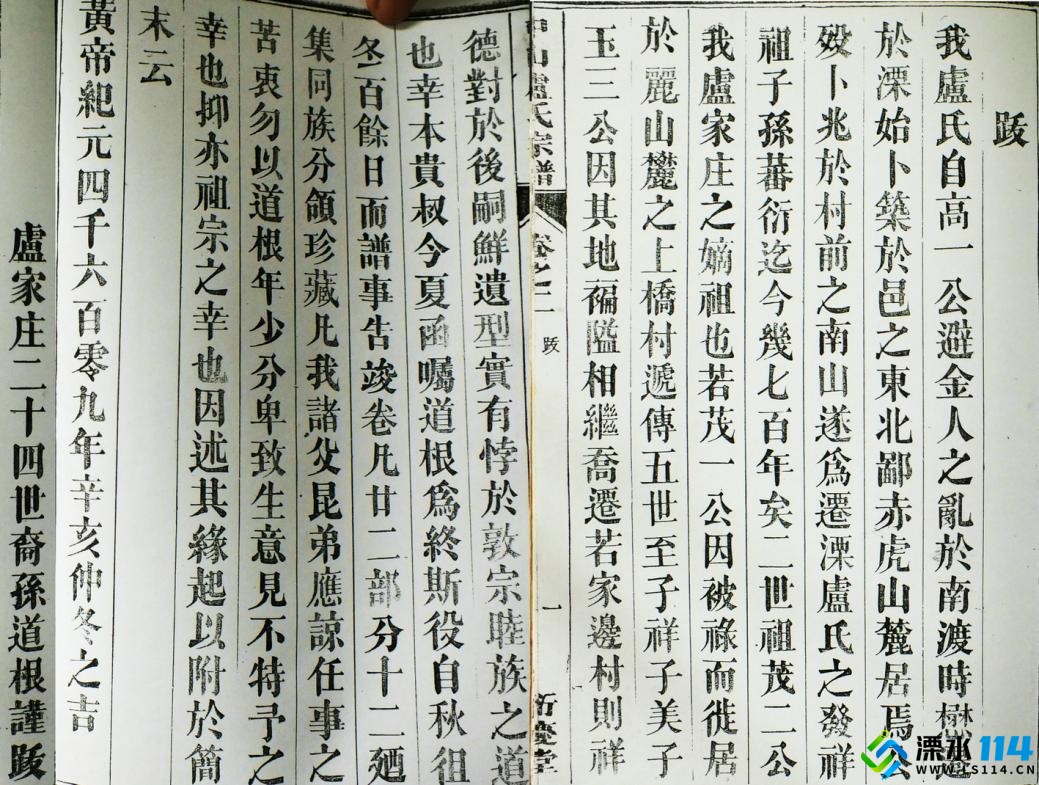 跋
我盧氏自高一公避金人之亂於南渡時懋
於溧始卜築於邑之東北鄙赤虎山麓居焉公
歿卜兆於村前之南山遂爲遷溧盧氏之發祥
祖子孫蕃衍迄今幾七百年矣二世祖茂二公
我盧家庄之嫡祖也若茂一公因被祿而徙居
於麗山麓之上橋村遞傳五世至子祥子美子
玉三公因其地褊隘相繼喬遷若家邊村則祥
中山盧氏宗譜
卷之二
跋
一
德對於後嗣鮮遺型實有悖於敦宗睦族之道
也幸本貴叔今夏函囑道根爲終斯役自秋徂
冬百餘日而譜事告竣卷凡廿二部分十二廼
集同族分領珍藏凡我諸父昆弟應諒任事之
苦衷勿以道根年少分卑致生意見不特予之
幸也抑亦祖宗之幸也因述其緣起以附於簡
末云
黃帝紀元四千六百零九年辛亥仲冬之吉
盧家庄二十四世裔孫道根謹跋
溧水114
WWW.LS114.CN